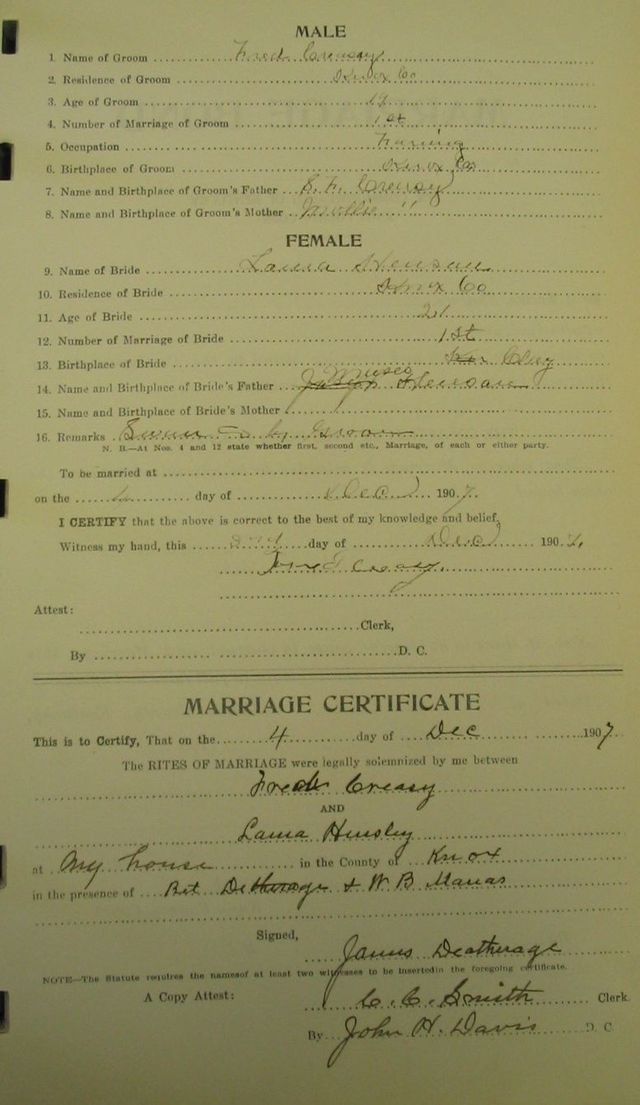 MALE
1. Name of Groom Fred Creasy
2. Residence of Groom Knox Co
3. Age of Groom 19
4. Number of Marriage of Groom 1st
5. Occupation Farming
6. Birthplace of Groom Knox Co
7. Name and Birthplace of Groom's Father S. F. Creasy
8. Name and Birthplace of Groom's Mother Mollie "
FEMALE
9. Name of Bride Henson
10. Residence of Bride Knox Co
11. Age of Bride 21
12. Number of Marriage of Bride 1st
13. Birthplace of Bride Clay
14. Name and Birthplace of Bride's Father Henson
15. Name and Birthplace of Bride's Mother
16. Remarks by Groom
N. B.—At Nos. 4 and 12 state whether first, second etc., Marriage, of each or either party.
To be married at
on the day of Dec 1907.
I CERTIFY that the above is correct to the best of my knowledge and belief.
Witness my hand, this 2nd day of Dec 1907.
Fred Creasy.
Attest:
Clerk,
By D. C.
MARRIAGE CERTIFICATE
This is to Certify, That on the 4 day of Dec 1907
The RITES OF MARRIAGE were legally solemnized by me between
Fred Creasy
AND
Hensley
at my house in the County of Knox
in the presence of Detherage & W B
Signed,
James Deatherage
NOTE—The Statute requires the names of at least two witnesses to be inserted in the foregoing certificate.
A Copy Attest: C. C. Smith Clerk
By John H. Davis D. C.